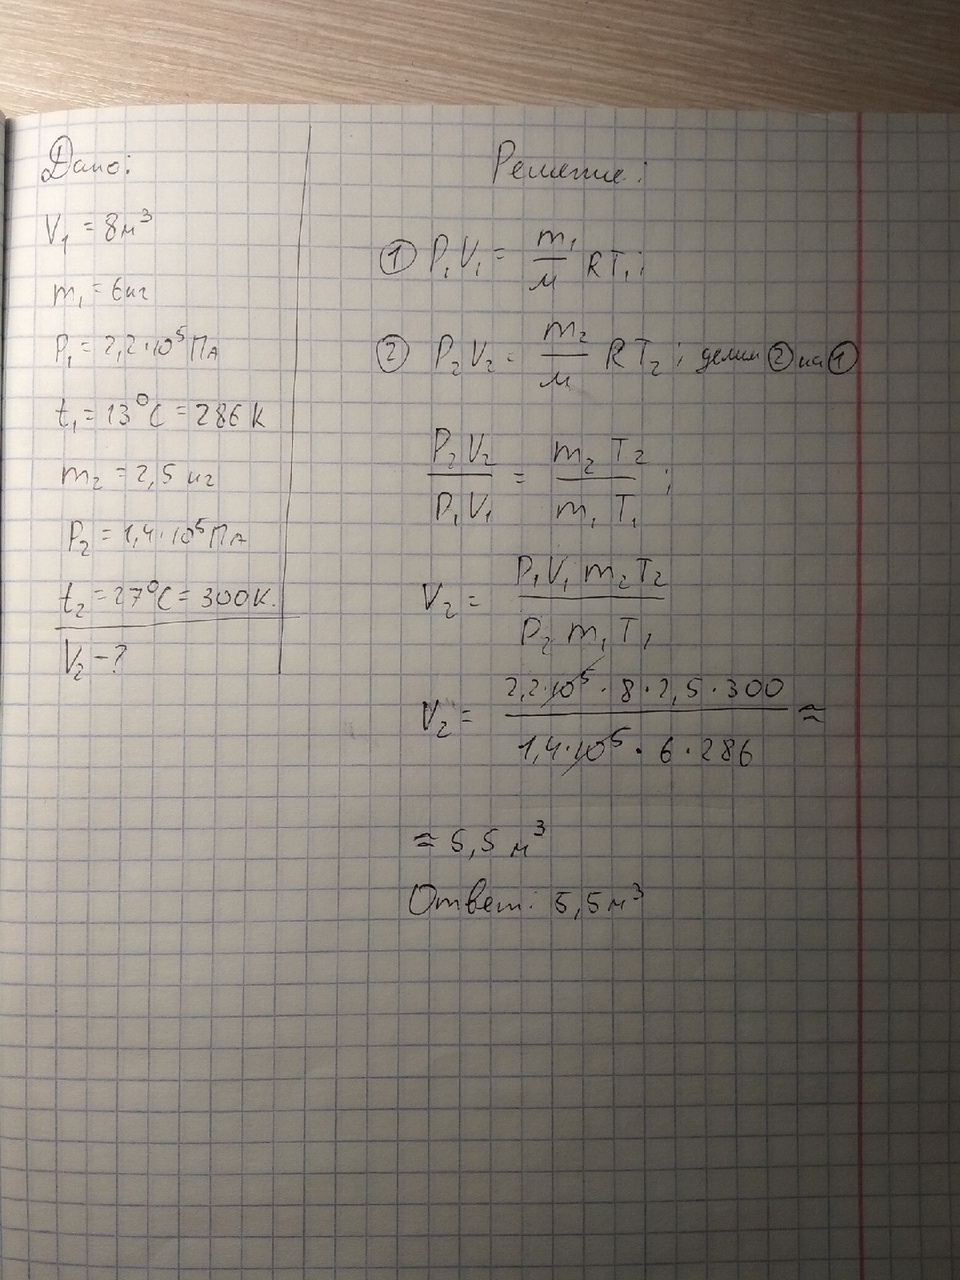 Дано:
V₁ = 8м³
m₁ = 6кг
P₁ = 2,2·10⁵ Па
t₁ = 13°C = 286 K
m₂ = 2,5 кг
P₂ = 1,4·10⁵ Па
t₂ = 27°C = 300K.
V₂ - ?
Решение:
① P₁V₁ = m₁/μ RT₁;
② P₂V₂ = m₂/μ RT₂; делим ② на ①
P₂V₂/P₁V₁ = m₂T₂/m₁T₁;
V₂ = P₁V₁m₂T₂/P₂m₁T₁
V₂ = 2,2·10⁵·8·2,5·300/1,4·10⁵·6·286 ≈
≈ 5,5 м³
Ответ: 5,5м³